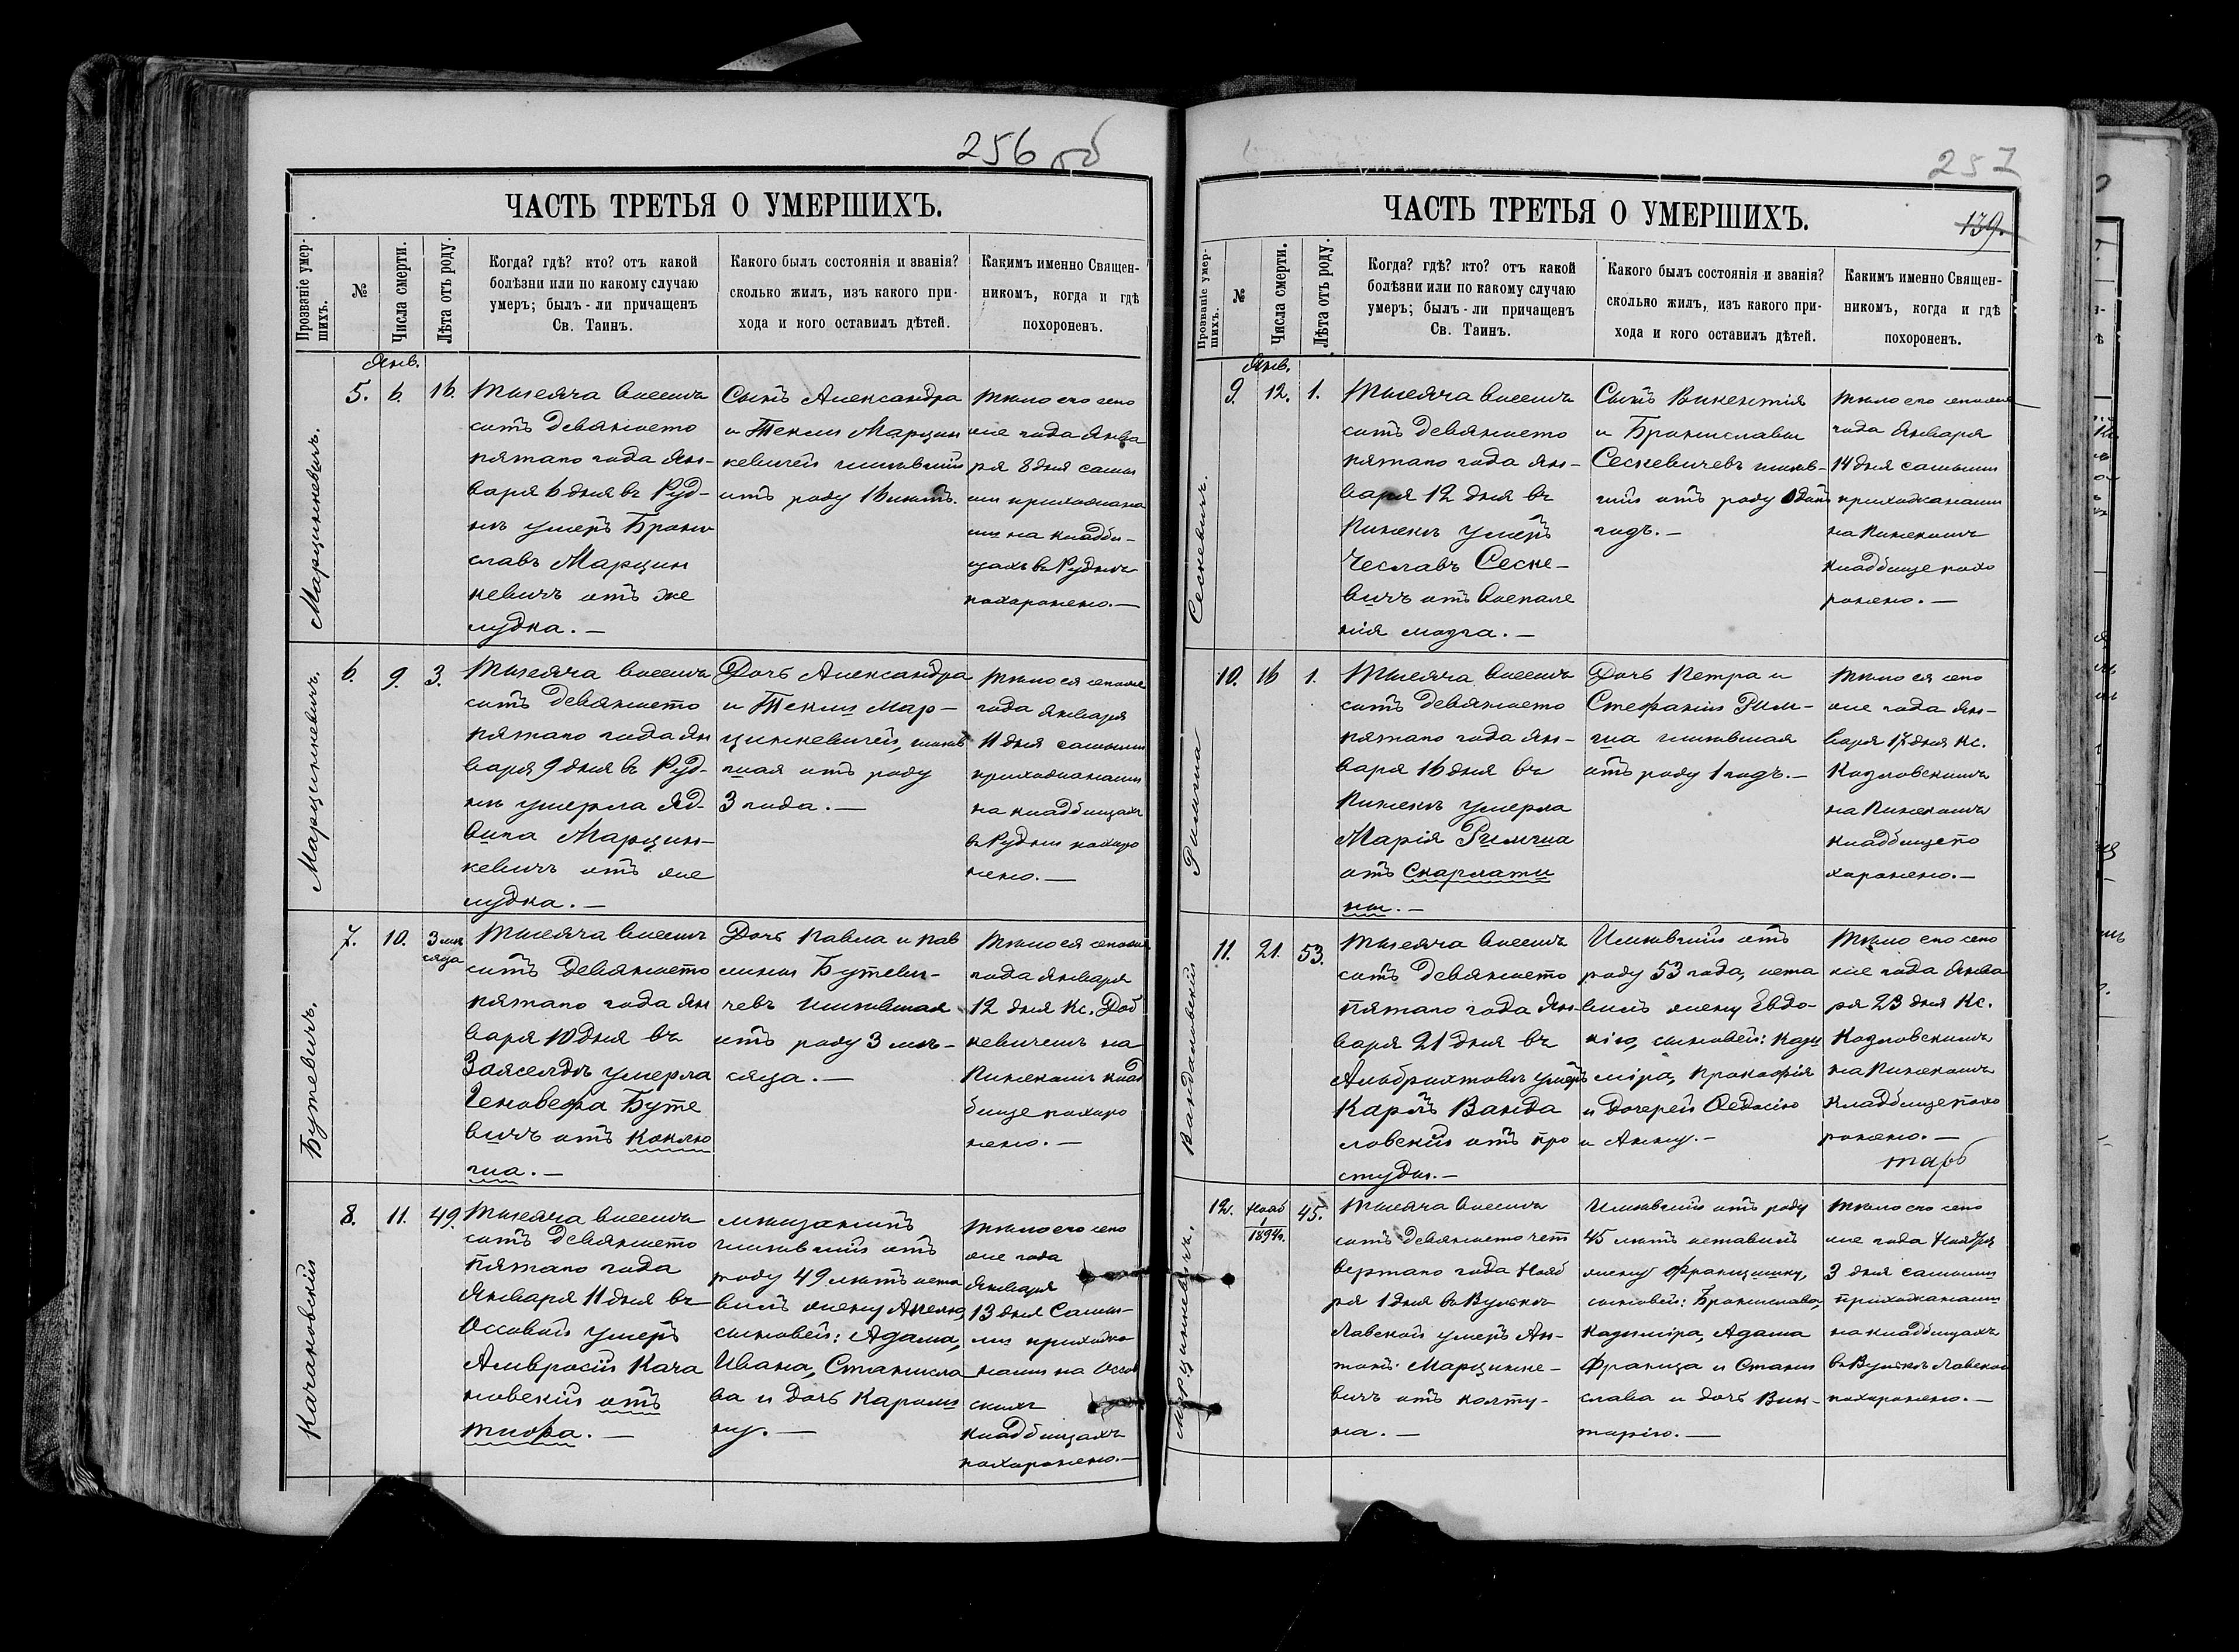 256 об
ЧАСТЬ ТРЕТЬЯ О УМЕРШИХЪ.
Прозваніе умер-
шихъ.
№
Числа смерти.
Лѣта отъ роду.
Когда? гдѣ? кто? отъ какой
болѣзни или по какому случаю
умеръ; былъ-ли причащенъ
Св. Таинъ.
Какого былъ состоянія и званія?
сколько жилъ, изъ какого при-
хода и кого оставилъ дѣтей.
Какимъ именно Священ-
никомъ, когда и гдѣ
похороненъ.
Янв.
Марцинкевичъ.
5.
6.
16.
Тысяча восемь
сотъ девяносто
пятаго года Ян-
варя 6 дня въ Руд-
нѣ умеръ Брони
славъ Марцин
кевичъ отъ же
лудка. —
Сынъ Александра
и Текли Марцин
кевичей жившій
отъ роду 16 лѣтъ.
Тѣло его сего
же года Янва
ря 8 дня самы
ми прихожана
ми на кладби-
щахъ въ Руднѣ
похоронено. —
Марцинкевичъ.
6.
9.
3.
Тысяча восемь
сотъ девяносто
пятаго года Ян
варя 9 дня въ Руд-
нѣ умерла Яд-
вига Марцин-
кевичъ отъ же
лудка. —
Дочь Александра
и Текли Мар-
цинкевичей, жив
шая отъ роду
3 года. —
Тѣло ея сего же
года Января
11 дня самыми
прихожанами
на кладбищахъ
въ Руднѣ похоро
нено. —
Бутевичъ.
7.
10.
3 мѣ
сяца
Тысяча восемь
сотъ девяносто
пятаго года Ян
варя 10 дня въ
Заясельдѣ умерла
Геновефа Буте
вичъ отъ коклю
ша. —
Дочь Павла и Пав
лины Бутеви-
чевъ жившая
отъ роду 3 мѣ-
сяца. —
Тѣло ея сего же
года Января
12 дня Кс. Доб
кевичемъ на
Пинскомъ клад
бище похоро
нено. —
Качановскій
8.
11.
49.
Тысяча восемь
сотъ девяносто
пятаго года
Января 11 дня въ
Оссовой умеръ
Амвросій Кача
новскій отъ
тифа. —
мѣщанинъ
жившій отъ
роду 49 лѣтъ оста
вилъ жену Анелю,
сыновей: Адама,
Ивана, Станисла
ва и дочь Кароли
ну. —
Тѣло его сего
же года
Января
13 дня самы-
ми прихожа
нами на Оссов
скихъ
кладбищахъ
похоронено. —
257
ЧАСТЬ ТРЕТЬЯ О УМЕРШИХЪ.
139.
Прозваніе умер-
шихъ.
№
Числа смерти.
Лѣта отъ роду.
Когда? гдѣ? кто? отъ какой
болѣзни или по какому случаю
умеръ; былъ-ли причащенъ
Св. Таинъ.
Какого былъ состоянія и званія?
сколько жилъ, изъ какого при-
хода и кого оставилъ дѣтей.
Какимъ именно Священ-
никомъ, когда и гдѣ
похороненъ.
Янв.
Сескевичъ.
9.
12.
1.
Тысяча восемь
сотъ девяносто
пятаго года Ян-
варя 12 дня въ
Пинскѣ умеръ
Чеславъ Секе-
вичъ отъ воспале
нія мозга. —
Сынъ Викентія
и Брониславы
Сескевичевъ жив-
шій отъ роду одинъ
годъ. —
Тѣло его сего же
года Января
14 дня самыми
прихожанами
на Пинскомъ
кладбище похо
ронено. —
Римша
10.
16
1.
Тысяча восемь
сотъ девяносто
пятаго года Ян-
варя 16 дня въ
Пинскѣ умерла
Марія Римша
отъ скарлати
ны. —
Дочь Петра и
Стефаніи Рим-
ша жившая
отъ роду 1 годъ. —
Тѣло ея сего
же года Ян-
варя 17 дня Кс.
Козловскимъ
на Пинскомъ
кладбище по
хоронено. —
Вандаловскій
11.
21.
53.
Тысяча восемь
сотъ девяносто
пятаго года Ян-
варя 21 дня въ
Альбрихтовѣ умеръ
Карлъ Ванда
ловскій отъ про
студы. —
Жившій отъ
роду 53 года, оста
вилъ жену Евдо-
кію, сыновей: Кази
міра, Прокофія
и дочерей Ѳедосію
и Анну. —
Тѣло его сего
же года Янва
ря 23 дня Кс.
Козловскимъ
на Пинскомъ
кладбище похо
ронено. —
Марцинкевичъ.
12.
Нояб
1
1894г.
45.
Тысяча восемь
сотъ девяносто чет
вертаго года Нояб
ря 1 дня въ Вулькѣ
Лавской умеръ Ан-
тонъ Марцинке-
вичъ отъ колту-
на. —
Жившій отъ роду
45 лѣтъ оставилъ
жену Францишку,
сыновей: Бронислава,
Казиміра, Адама
Франца и Стани
слава и дочь Вик-
торію. —
Тѣло его сего
же года Ноября
3 дня самыми
прихожанами
на кладбищахъ
въ Вулькѣ Лавской
похоронено. —